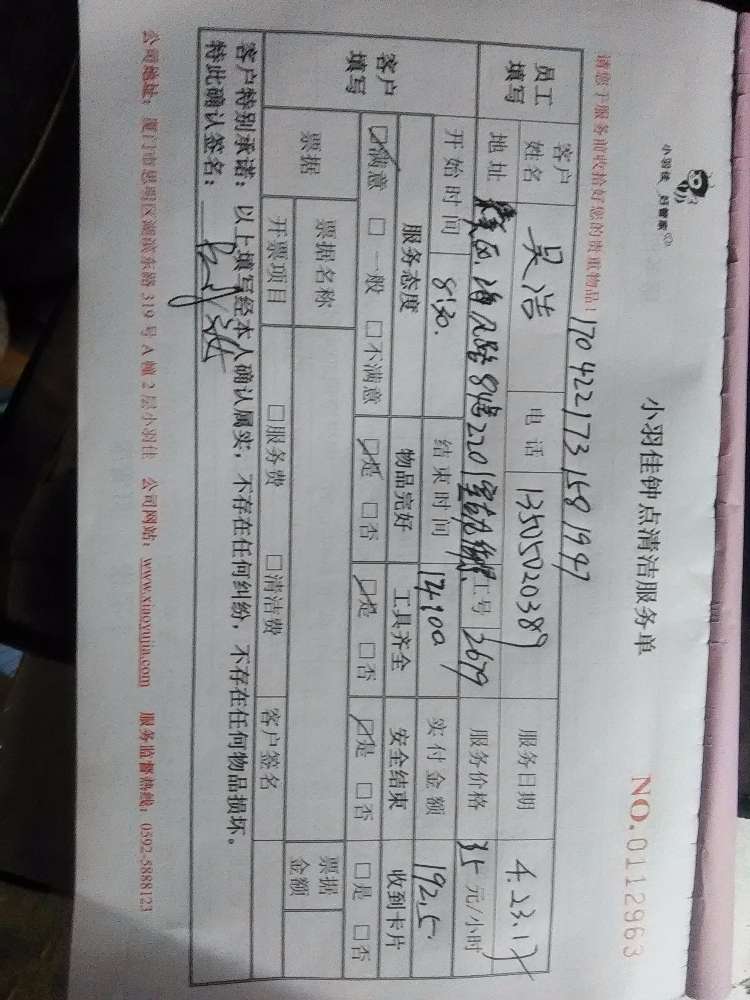 小羽佳 好管家
小羽佳钟点清洁服务单 NO.0112963
请您于服务前收拾好您的贵重物品！ 170422173158 1947
员工填写 客户姓名 吴浩 电话 13505020389 服务日期 4.23.17
地址 8号2201室 工号 2679 服务价格 35 元/小时
开始时间 8:30. 结束时间 实付金额 192.5
客户填写 服务态度 物品完好 工具齐全 安全结束 收到卡片
☑满意 □一般 □不满意 ☑是 □否 ☑是 □否 ☑是 □否 □是 □否
票据 票据名称 票据金额
开票项目 □服务费 □清洁费 客户签名
客户特别承诺：以上填写经本人确认属实，不存在任何纠纷，不存在任何物品损坏。
特此确认签名：
公司地址：厦门市思明区湖滨东路 319 号 A 幢 2 层小羽佳 公司网站：www.xiaoyujia.com 服务监督热线：0592-5888123